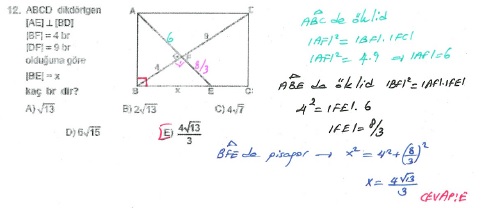 12. ABCD dikdörtgen
[AE] ⊥ [BD]
|BF| = 4 br
|DF| = 9 br
olduğuna göre
|BE| = x
kaç br dir?
A) √13
B) 2√13
C) 4√7
D) 6√15
E) 4√13/3
A
B
x
E
C
F
6
9
4
8/3
ABC de öklid
|AF|² = |BF|.|FC|
|AF|² = 4.9 ⇒ |AF| = 6
ABE de öklid |BF|² = |AF|.|FE|
4² = |FE|.6
|FE| = 8/3
BFE de pisagor → x² = 4² + (8/3)²
x = 4√13/3
CEVAP:E